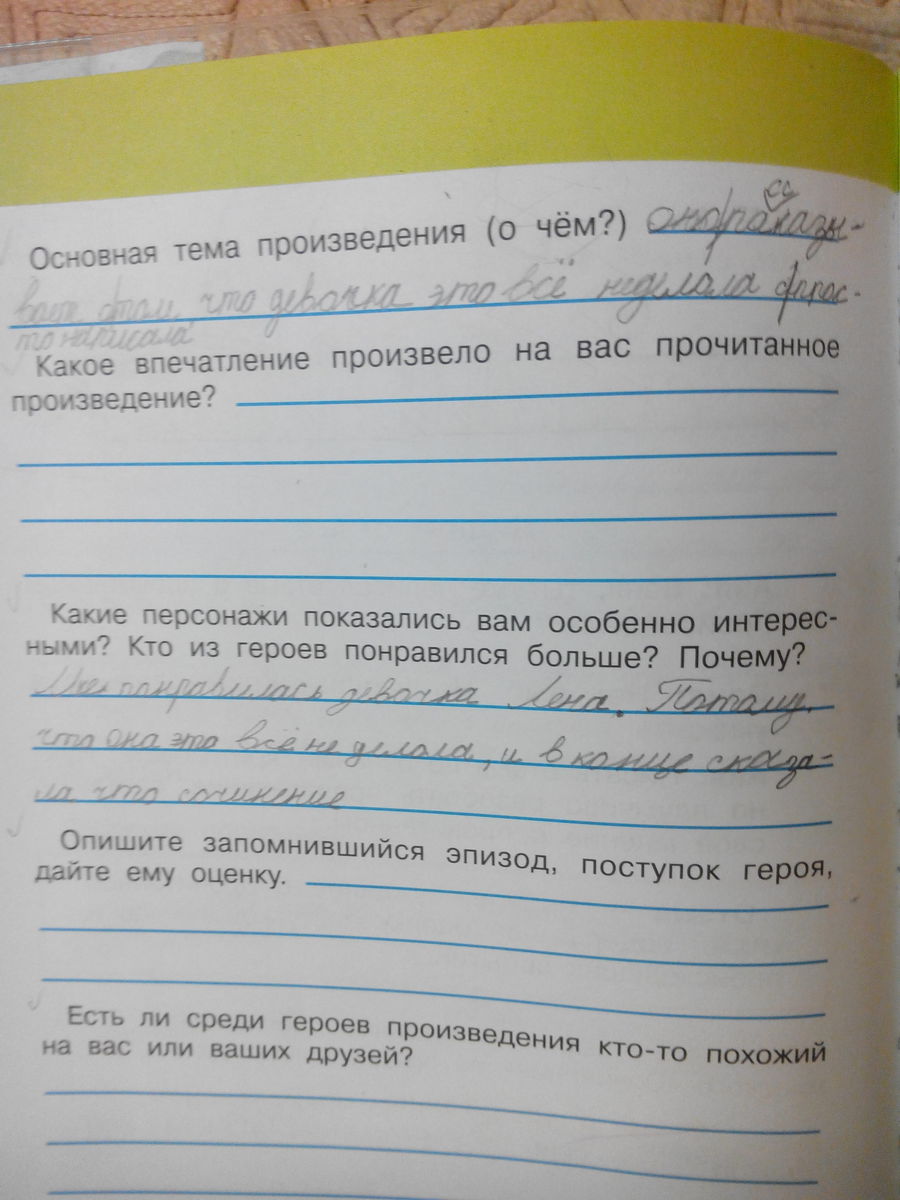 Основная тема произведения (о чём?) онорассказы-
вает отом, что девочка это всё неделала апрос-
то написала
Какое впечатление произвело на вас прочитанное
произведение?
Какие персонажи показались вам особенно интерес-
ными? Кто из героев понравился больше? Почему?
Мне понравилась девочка Лена. Потому,
что она это всё не делала, и в конце сказа-
ла что сочинение
Опишите запомнившийся эпизод, поступок героя,
дайте ему оценку.
Есть ли среди героев произведения кто-то похожий
на вас или ваших друзей?